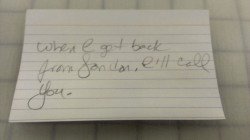 When I get back
from London, I'll call
you.